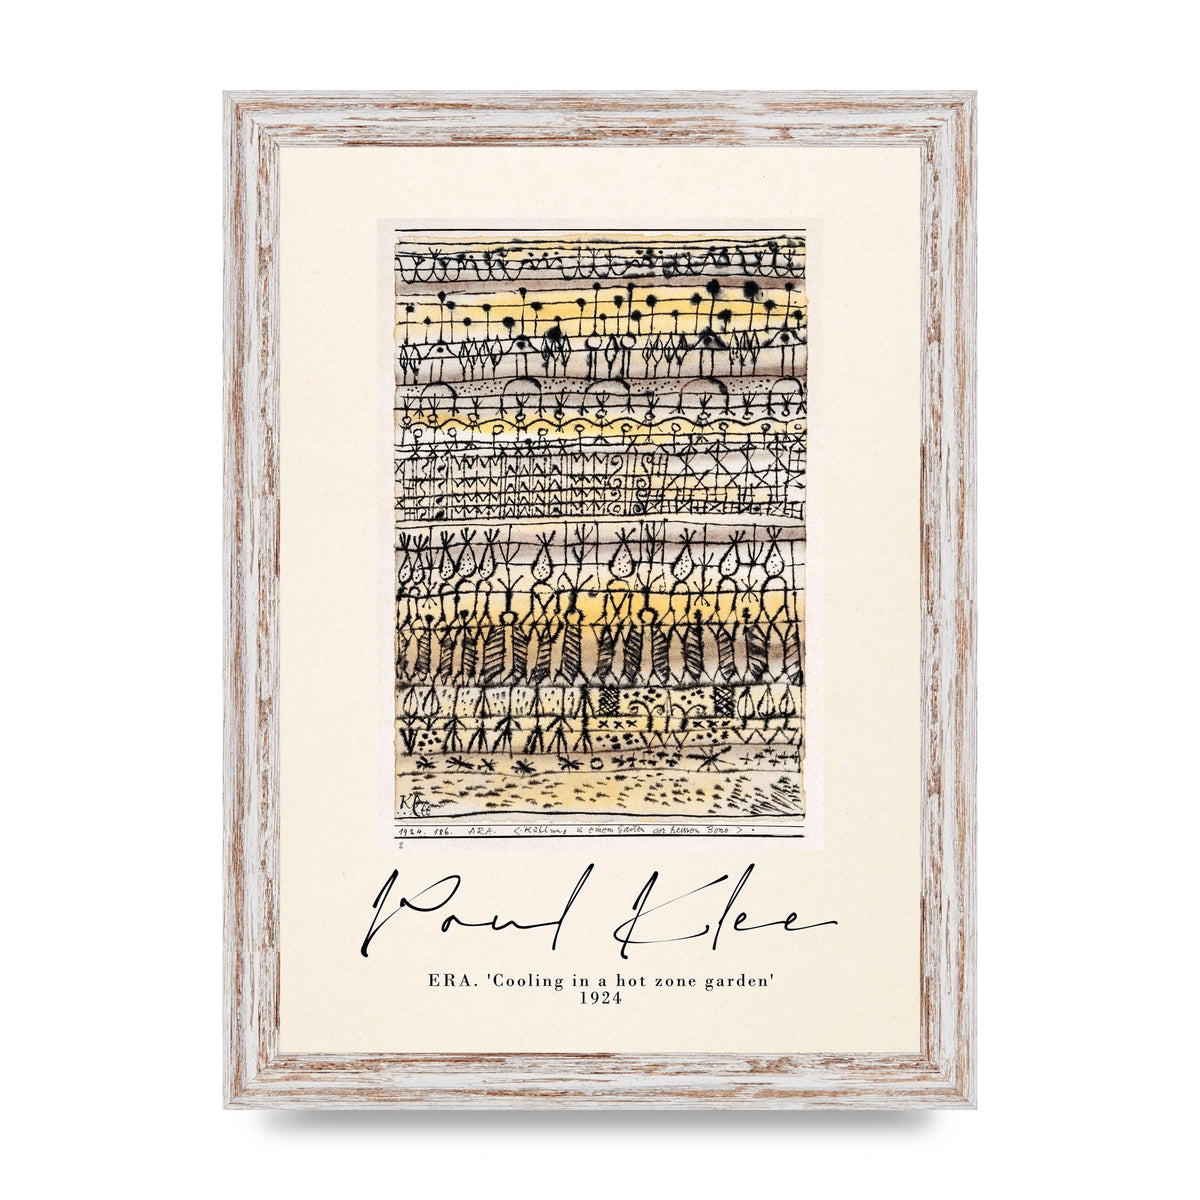 Klee
1924. 186. ARA. <. Kühlung in einem Garten der heissen Zone > .
Paul Klee
ERA. 'Cooling in a hot zone garden'
1924